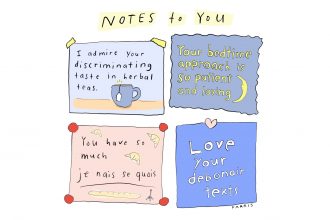 NOTES to YOU
I admire your
discriminating
taste in herbal
teas.
Your bedtime
approach is
so patient
and loving
You have so
much
je nais se quois
Love
your
debonair
texts